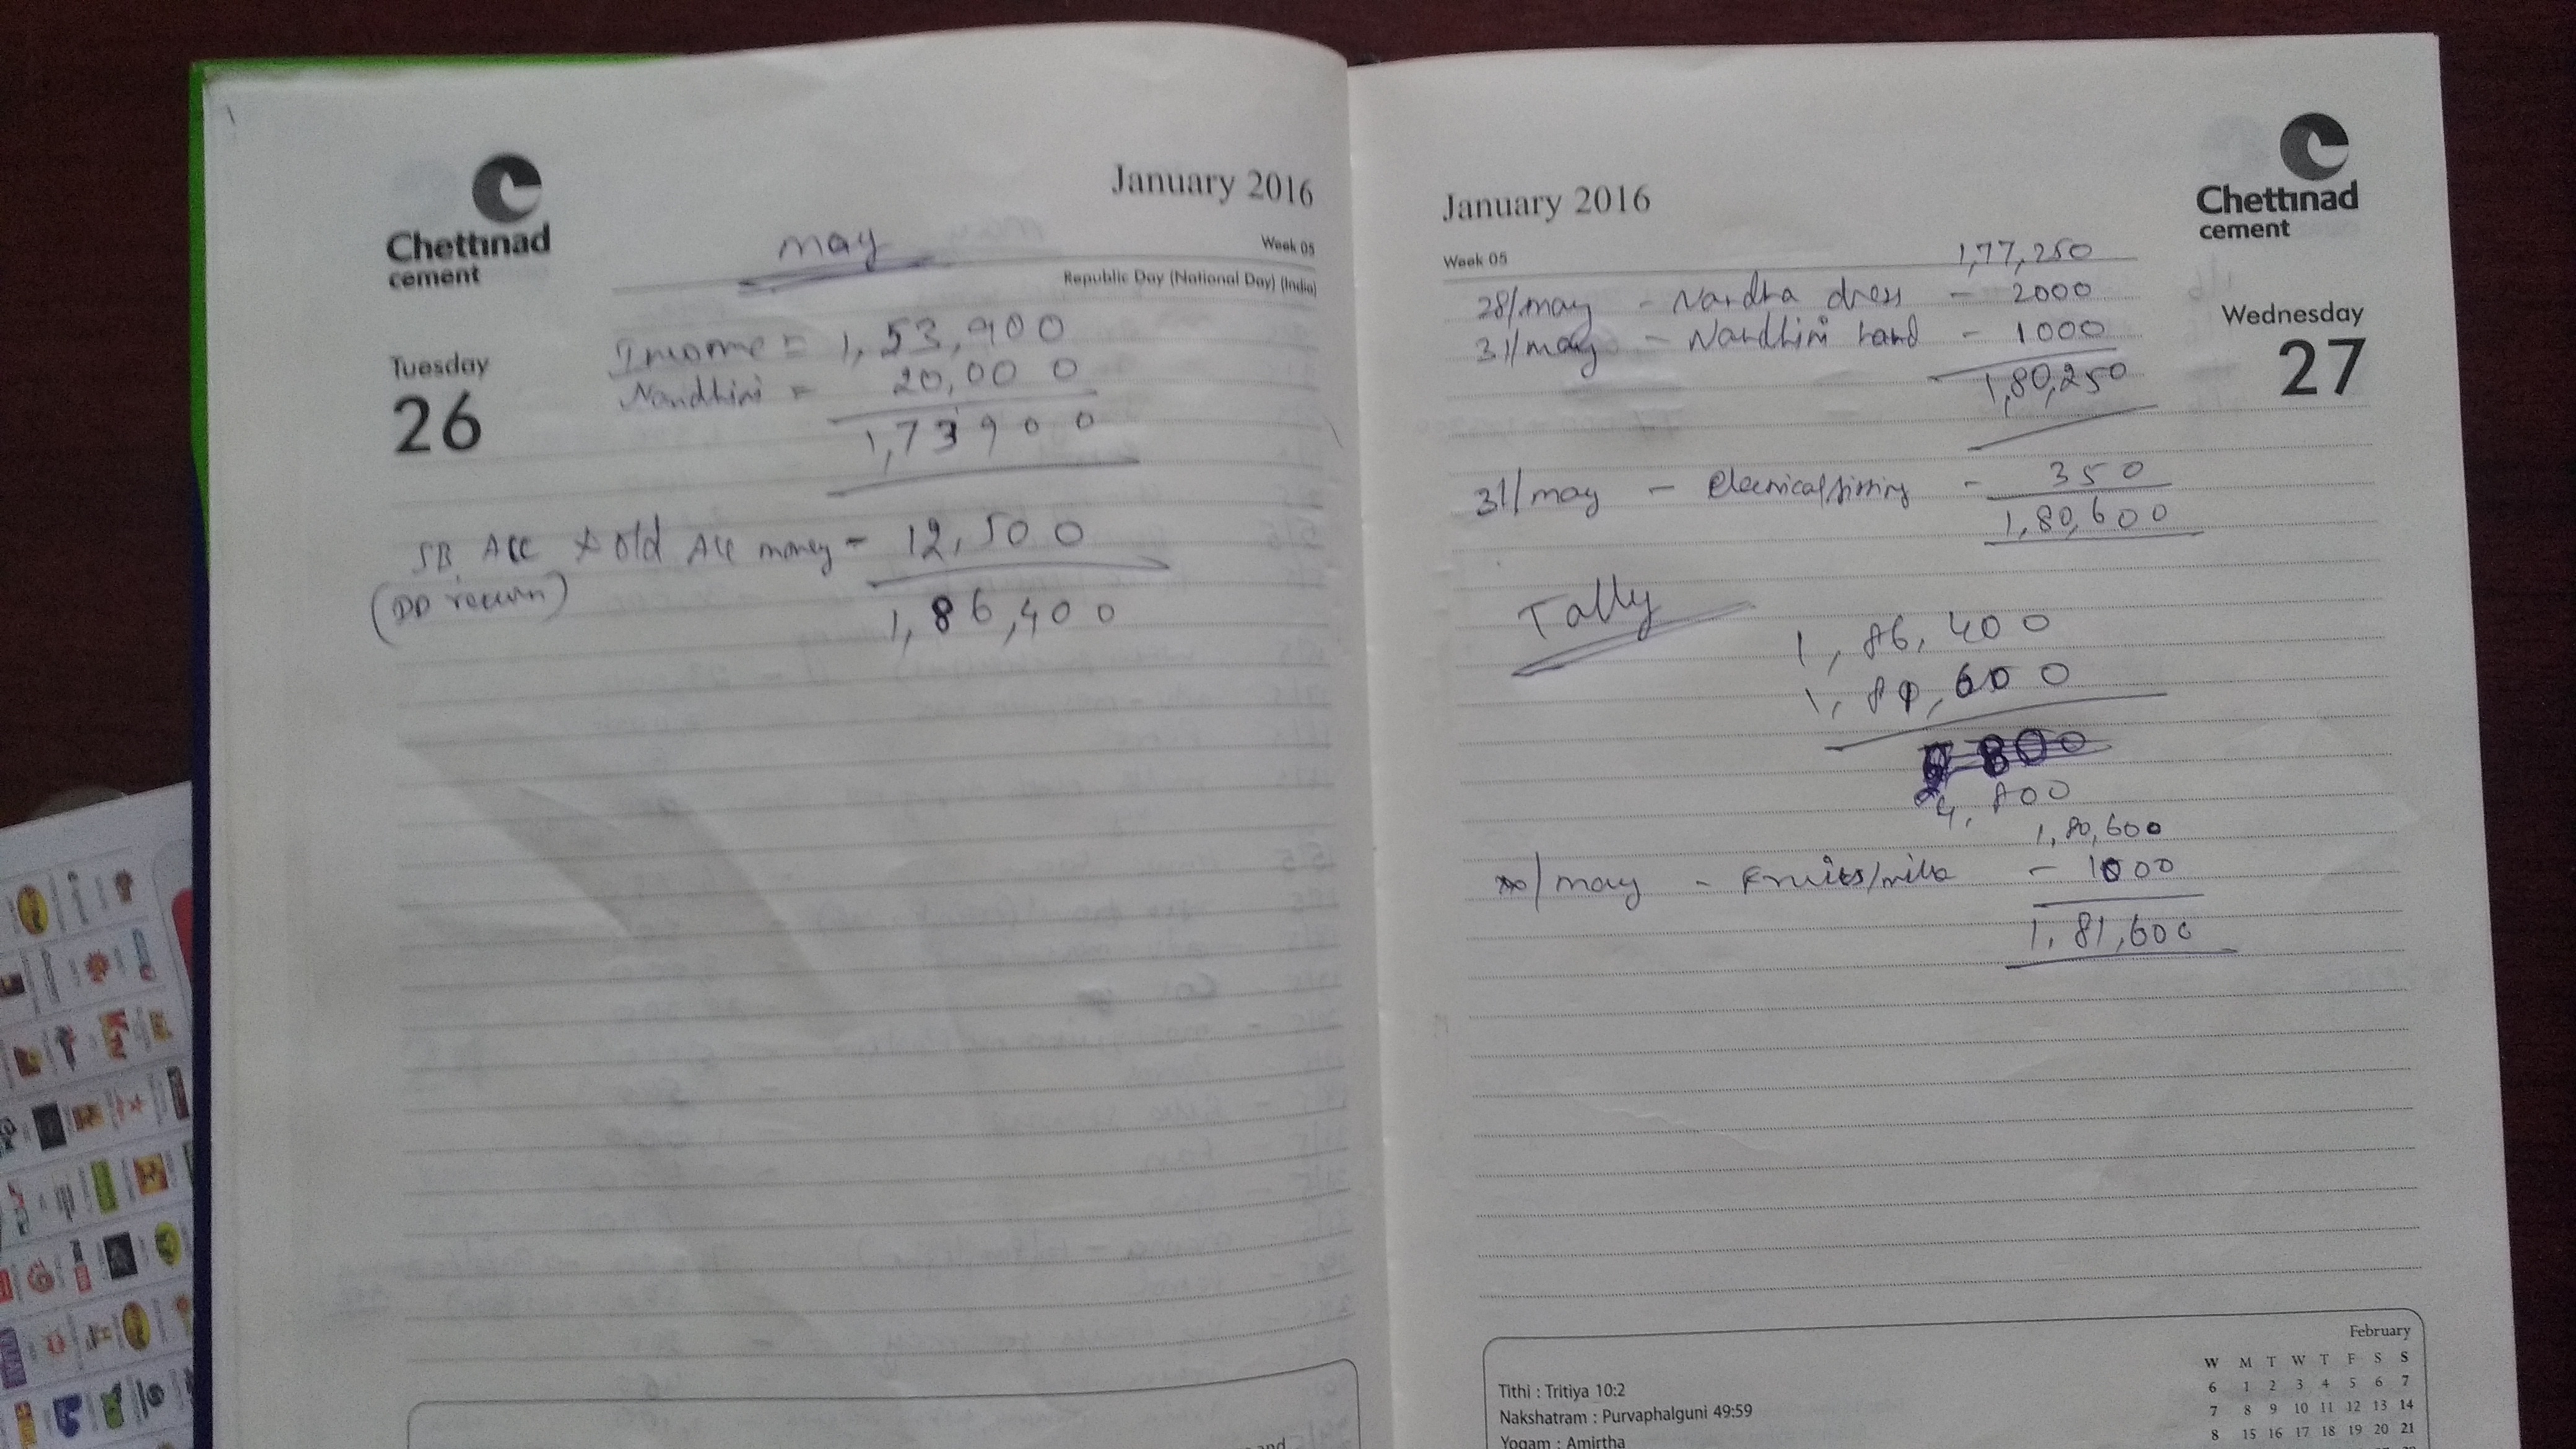 Chettinad
cement
January 2016
may
Week 05
Republic Day (National Day) (India)
Tuesday
26
Income = 1,53,900
Nandhini = 20,000
1,73900
SB Acc Old Acc money - 12,500
(DD return)
1,86,400
January 2016
Week 05
Chettinad
cement
Wednesday
27
1,77,250
28/may - Nandha dress - 2000
31/may - Nandhini hand - 1000
1,80,250
31/may - Electrical fitting - 350
1,80,600
Tally
1,86,400
1,81,600
4,800
1,80,600
/may - Fruits/milk - 1000
1,81,600
Tithi : Tritiya 10:2
Nakshatram : Purvaphalguni 49:59
Yogam : Amirtha
February
W M T W T F S S
6 1 2 3 4 5 6 7
7 8 9 10 11 12 13 14
8 15 16 17 18 19 20 21